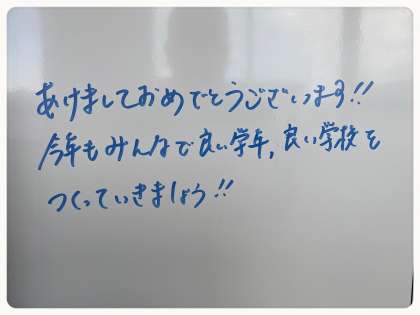 あけましておめでとうございます!!
今年もみんなで良い学年,良い学校を
つくっていきましょう!!